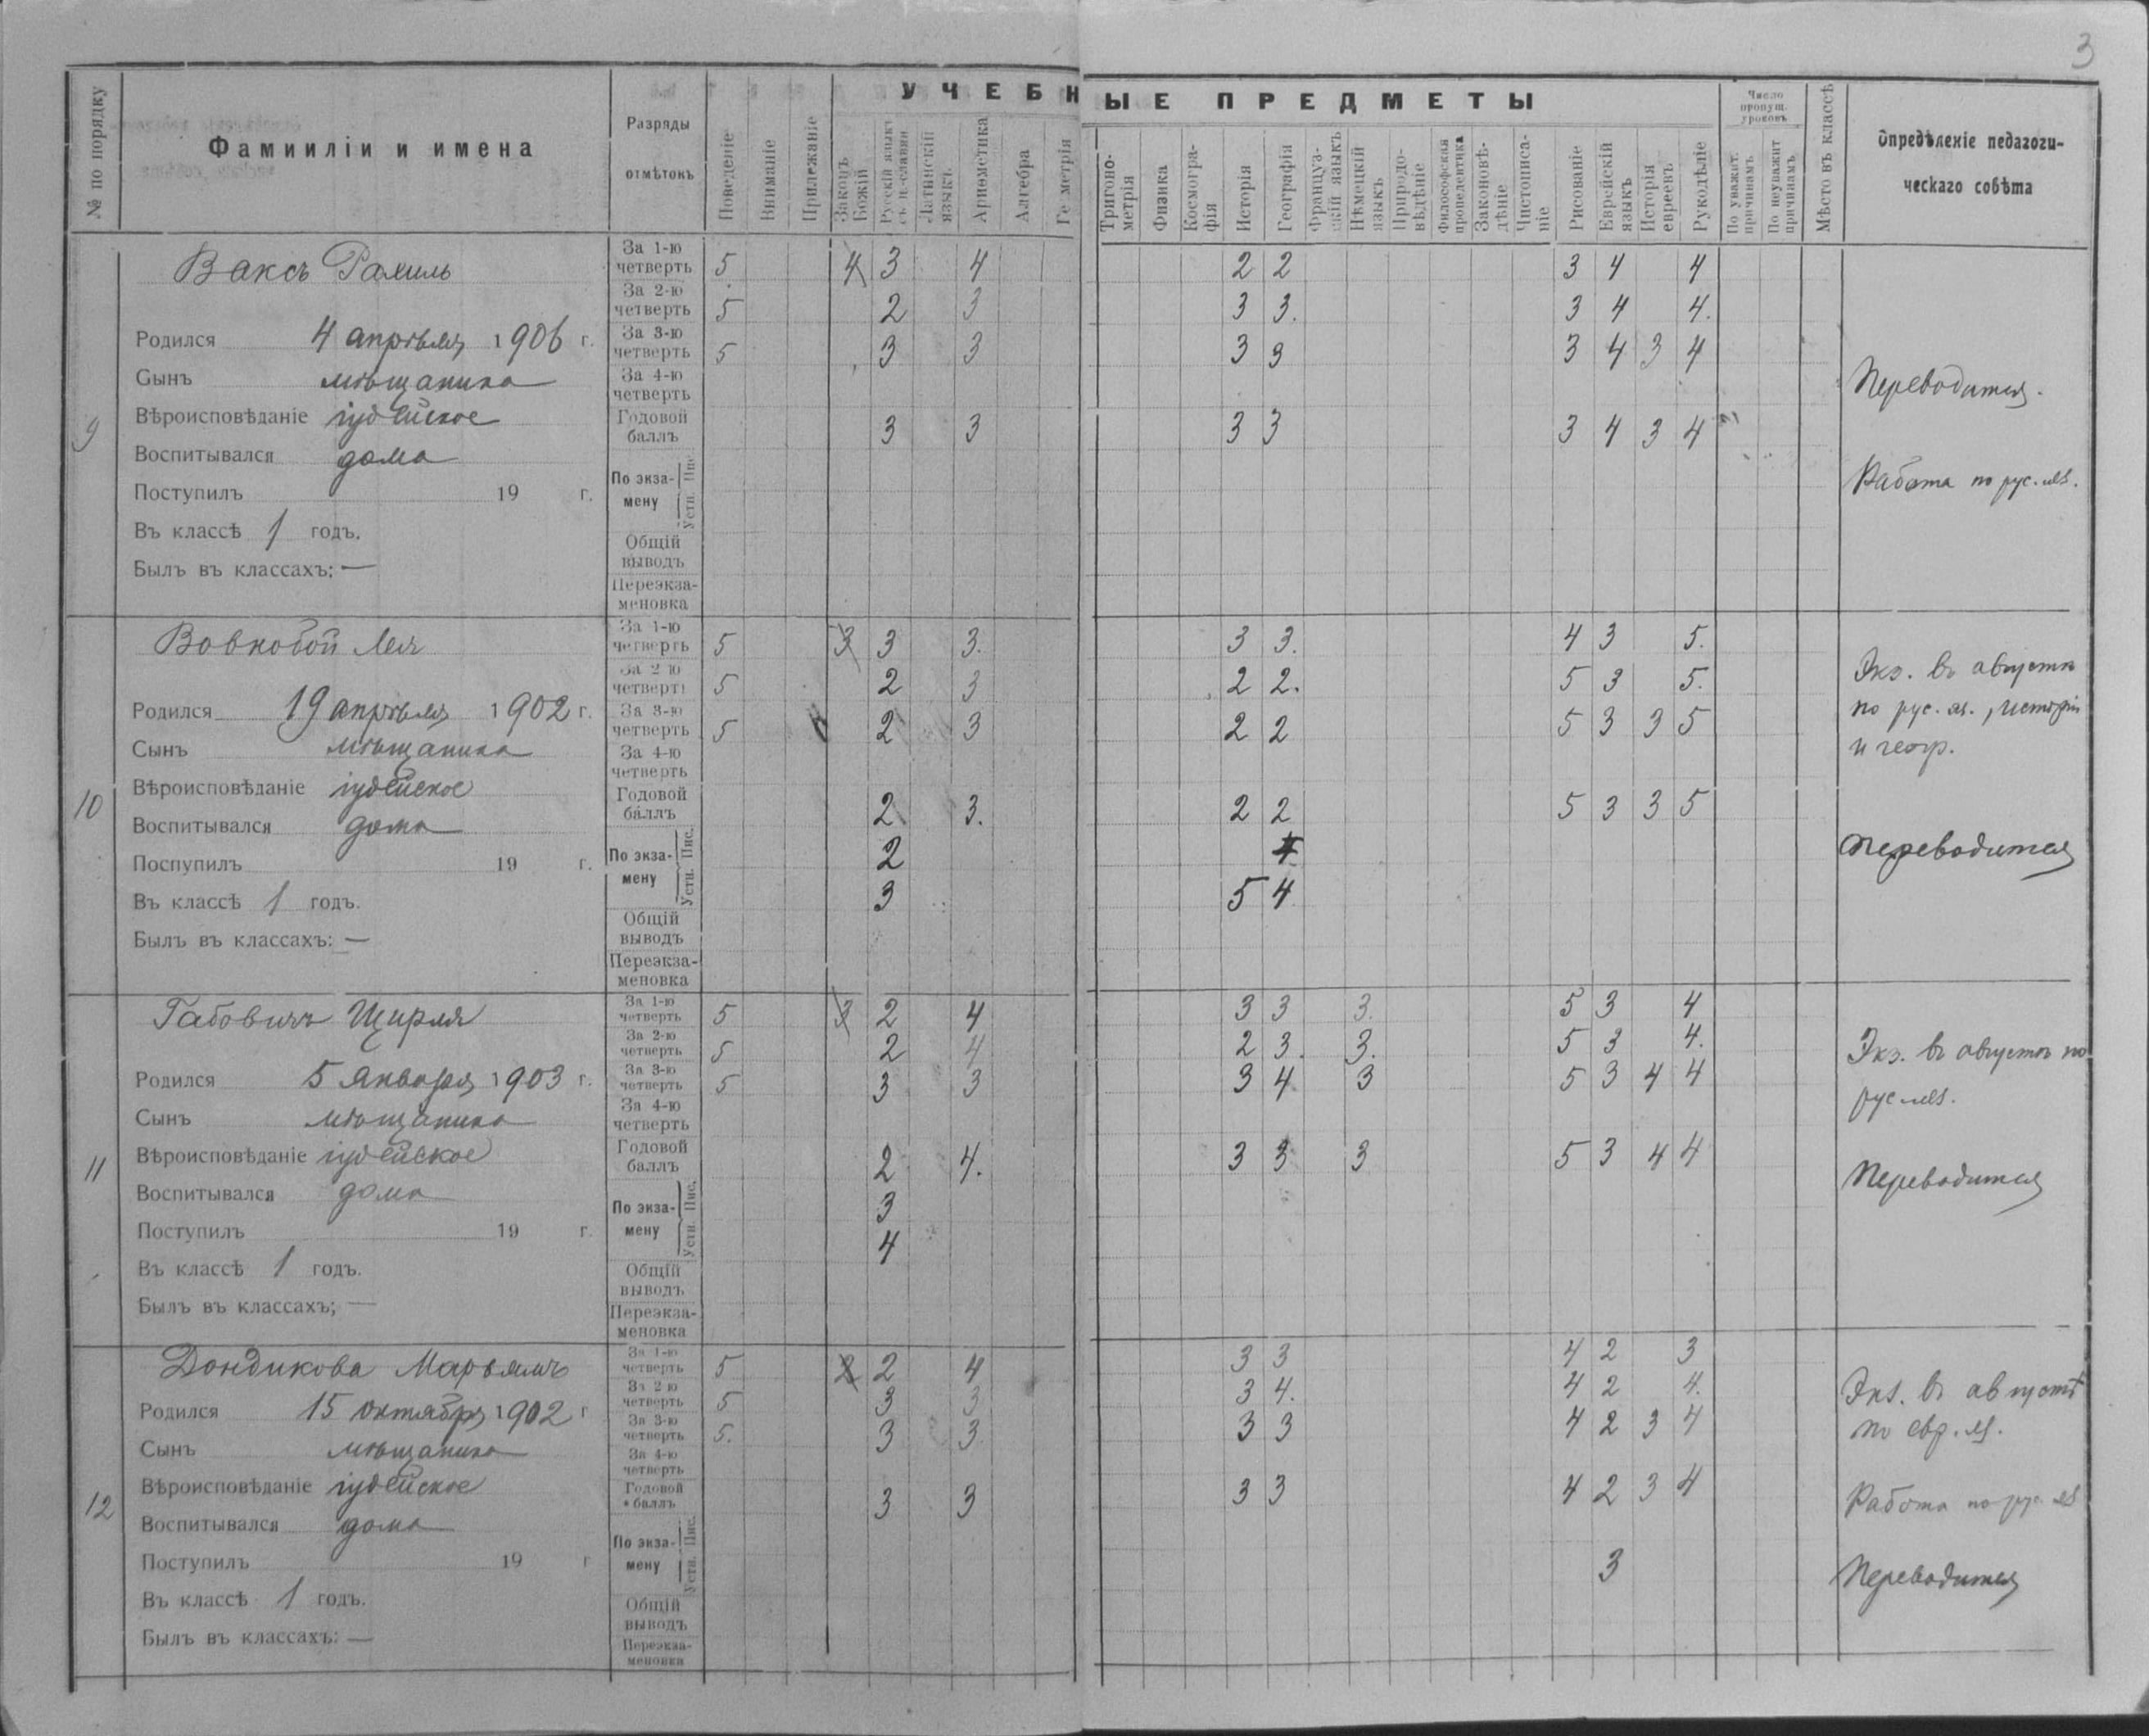 3
УЧЕБНЫЕ ПРЕДМЕТЫ
№ по порядку
Фамииліи и имена
Разряды
отмѣтокъ
Поведеніе
Вниманіе
Прилежаніе
Законъ Божій
Русскій языкъ съ ц.-славян
Латинскій языкъ
Ариѳметика
Алгебра
Ге метрія
Тригоно-метрія
Физика
Космогра-фія
Исторія
Географія
Француз-скій языкъ
Нѣмецкій языкъ
Природо-вѣдѣніе
Философская пропедевтика
Законовѣ-дѣніе
Чистописа-ніе
Рисованіе
Еврейскій языкъ
Исторія евреевъ
Рукодѣліе
Число пропущ. уроковъ
По уважит. причинамъ
По неуважит причинамъ
Мѣсто въ классѣ
Опредѣленіе педагоги-
ческаго совѣта
9
Ваксъ Рахиль
Родился 4 апрѣля 1906 г.
Сынъ мѣщанина
Вѣроисповѣданіе іудейское
Воспитывался дома
Поступилъ 19 г.
Въ классѣ 1 годъ.
Былъ въ классахъ; —
За 1-ю четверть 5 4 3 4 2 2 3 4 4
За 2-ю четверть 5 2 3 3 3. 3 4 4.
За 3-ю четверть 5 3 3 3 3 3 4 3 4
За 4-ю четверть
Годовой баллъ 3 3 3 3 3 4 3 4
По экза-мену Пис. Устн.
Общій выводъ
Переэкза-меновка
Переводится.
Работа по рус. яз.
10
Вовкобой Лея
Родился 19 апрѣля 1902 г.
Сынъ мѣщанина
Вѣроисповѣданіе іудейское
Воспитывался дома
Поспупилъ 19 г.
Въ классѣ 1 годъ.
Былъ въ классахъ: —
За 1-ю четверть 5 3 3 3. 3 3. 4 3 5.
За 2 ю четверть 5 2 3 2 2. 5 3 5.
За 3-ю четверть 5 2 3 2 2 5 3 3 5
За 4-ю четверть
Годовой баллъ 2 3. 2 2 5 3 3 5
По экза-мену Пис. 2 4
Устн. 3 5 4
Общій выводъ
Переэкза-меновка
Экз. въ августѣ
по рус. яз., исторіи
и геогр.
Переводится
11
Габовичъ Щирля
Родился 5 января 1903 г.
Сынъ мѣщанина
Вѣроисповѣданіе іудейское
Воспитывался дома
Поступилъ 19 г.
Въ классѣ 1 годъ.
Былъ въ классахъ; —
За 1-ю четверть 5 3 2 4 3 3 3. 5 3 4
За 2-ю четверть 5 2 4 2 3. 3. 5 3 4.
За 3-ю четверть 5 3 3 3 4 3 5 3 4 4
За 4-ю четверть
Годовой баллъ 2 4. 3 3 3 5 3 4 4
По экза-мену Пис. 3
Устн. 4
Общій выводъ
Переэкза-меновка
Экз. въ августѣ по
рус. яз.
Переводится
12
Дондикова Марьямъ
Родился 15 октября 1902 г
Сынъ мѣщанина
Вѣроисповѣданіе іудейское
Воспитывался дома
Поступилъ 19 г
Въ классѣ 1 годъ.
Былъ въ классахъ: —
За 1-ю четверть 5 2 2 4 3 3 4 2 3
За 2 ю четверть 5 3 3 3 4. 4 2 4.
За 3-ю четверть 5. 3 3 3 3 4 2 3 4
За 4-ю четверть
Годовой баллъ 3 3 3 3 4 2 3 4
По экза-мену Пис. Устн. 3
Общій выводъ
Переэкза-меновка
Экз. въ августѣ
по евр. яз.
Работа по рус. яз
Переводится